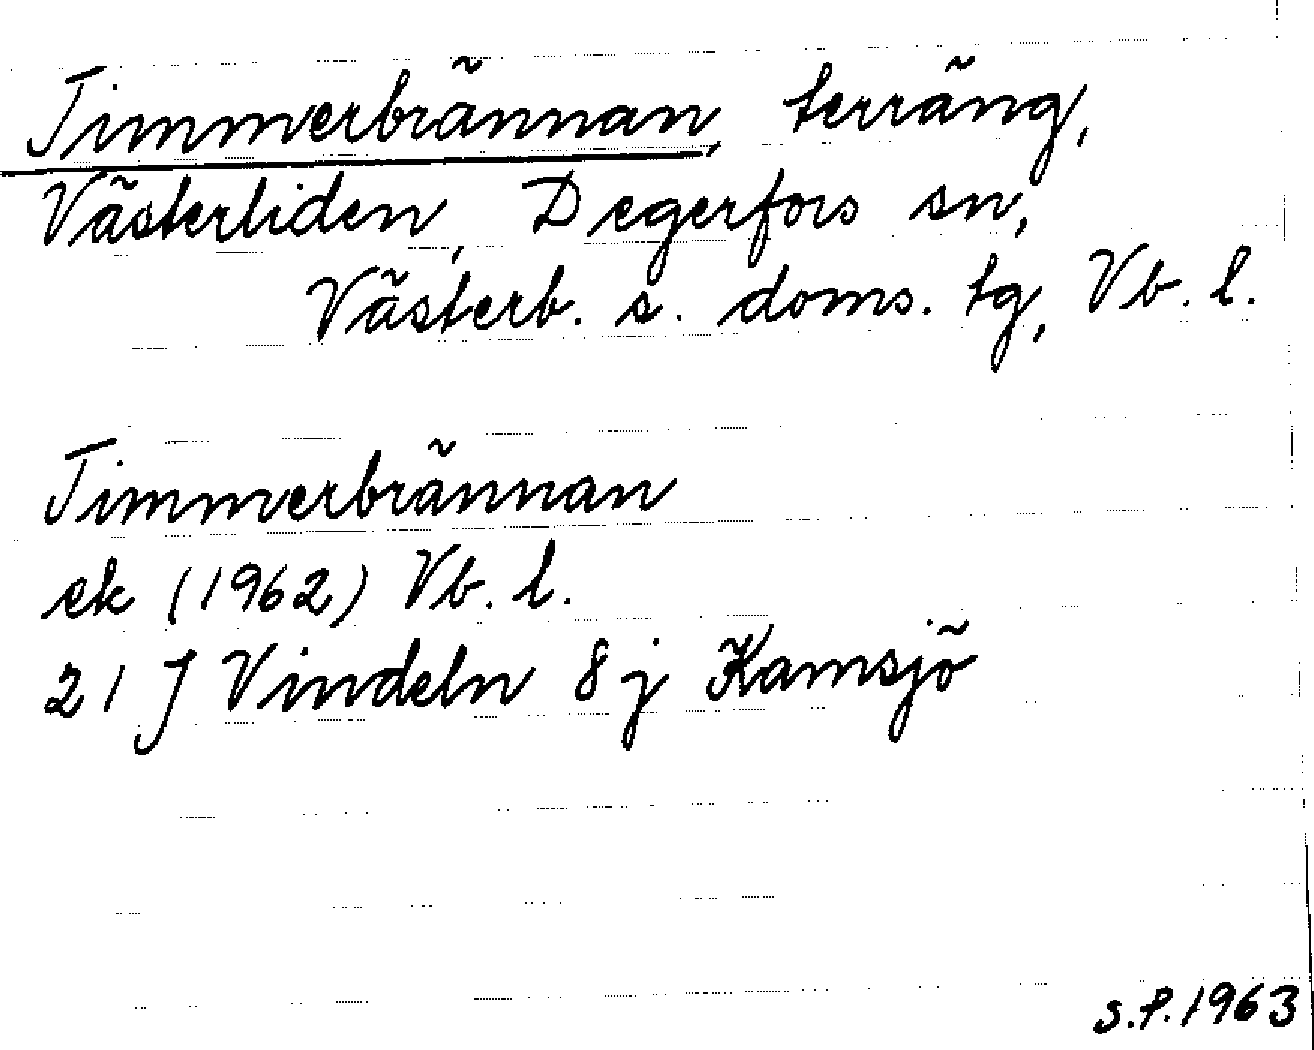 Timmerbrännan, terräng,
Västerliden, Degerfors sn,
Västerb. s. doms. tg, Vb. l.
Timmerbrännan
ek (1962) Vb. l.
21 J Vindeln 8 j Kamsjö
S.P. 1963